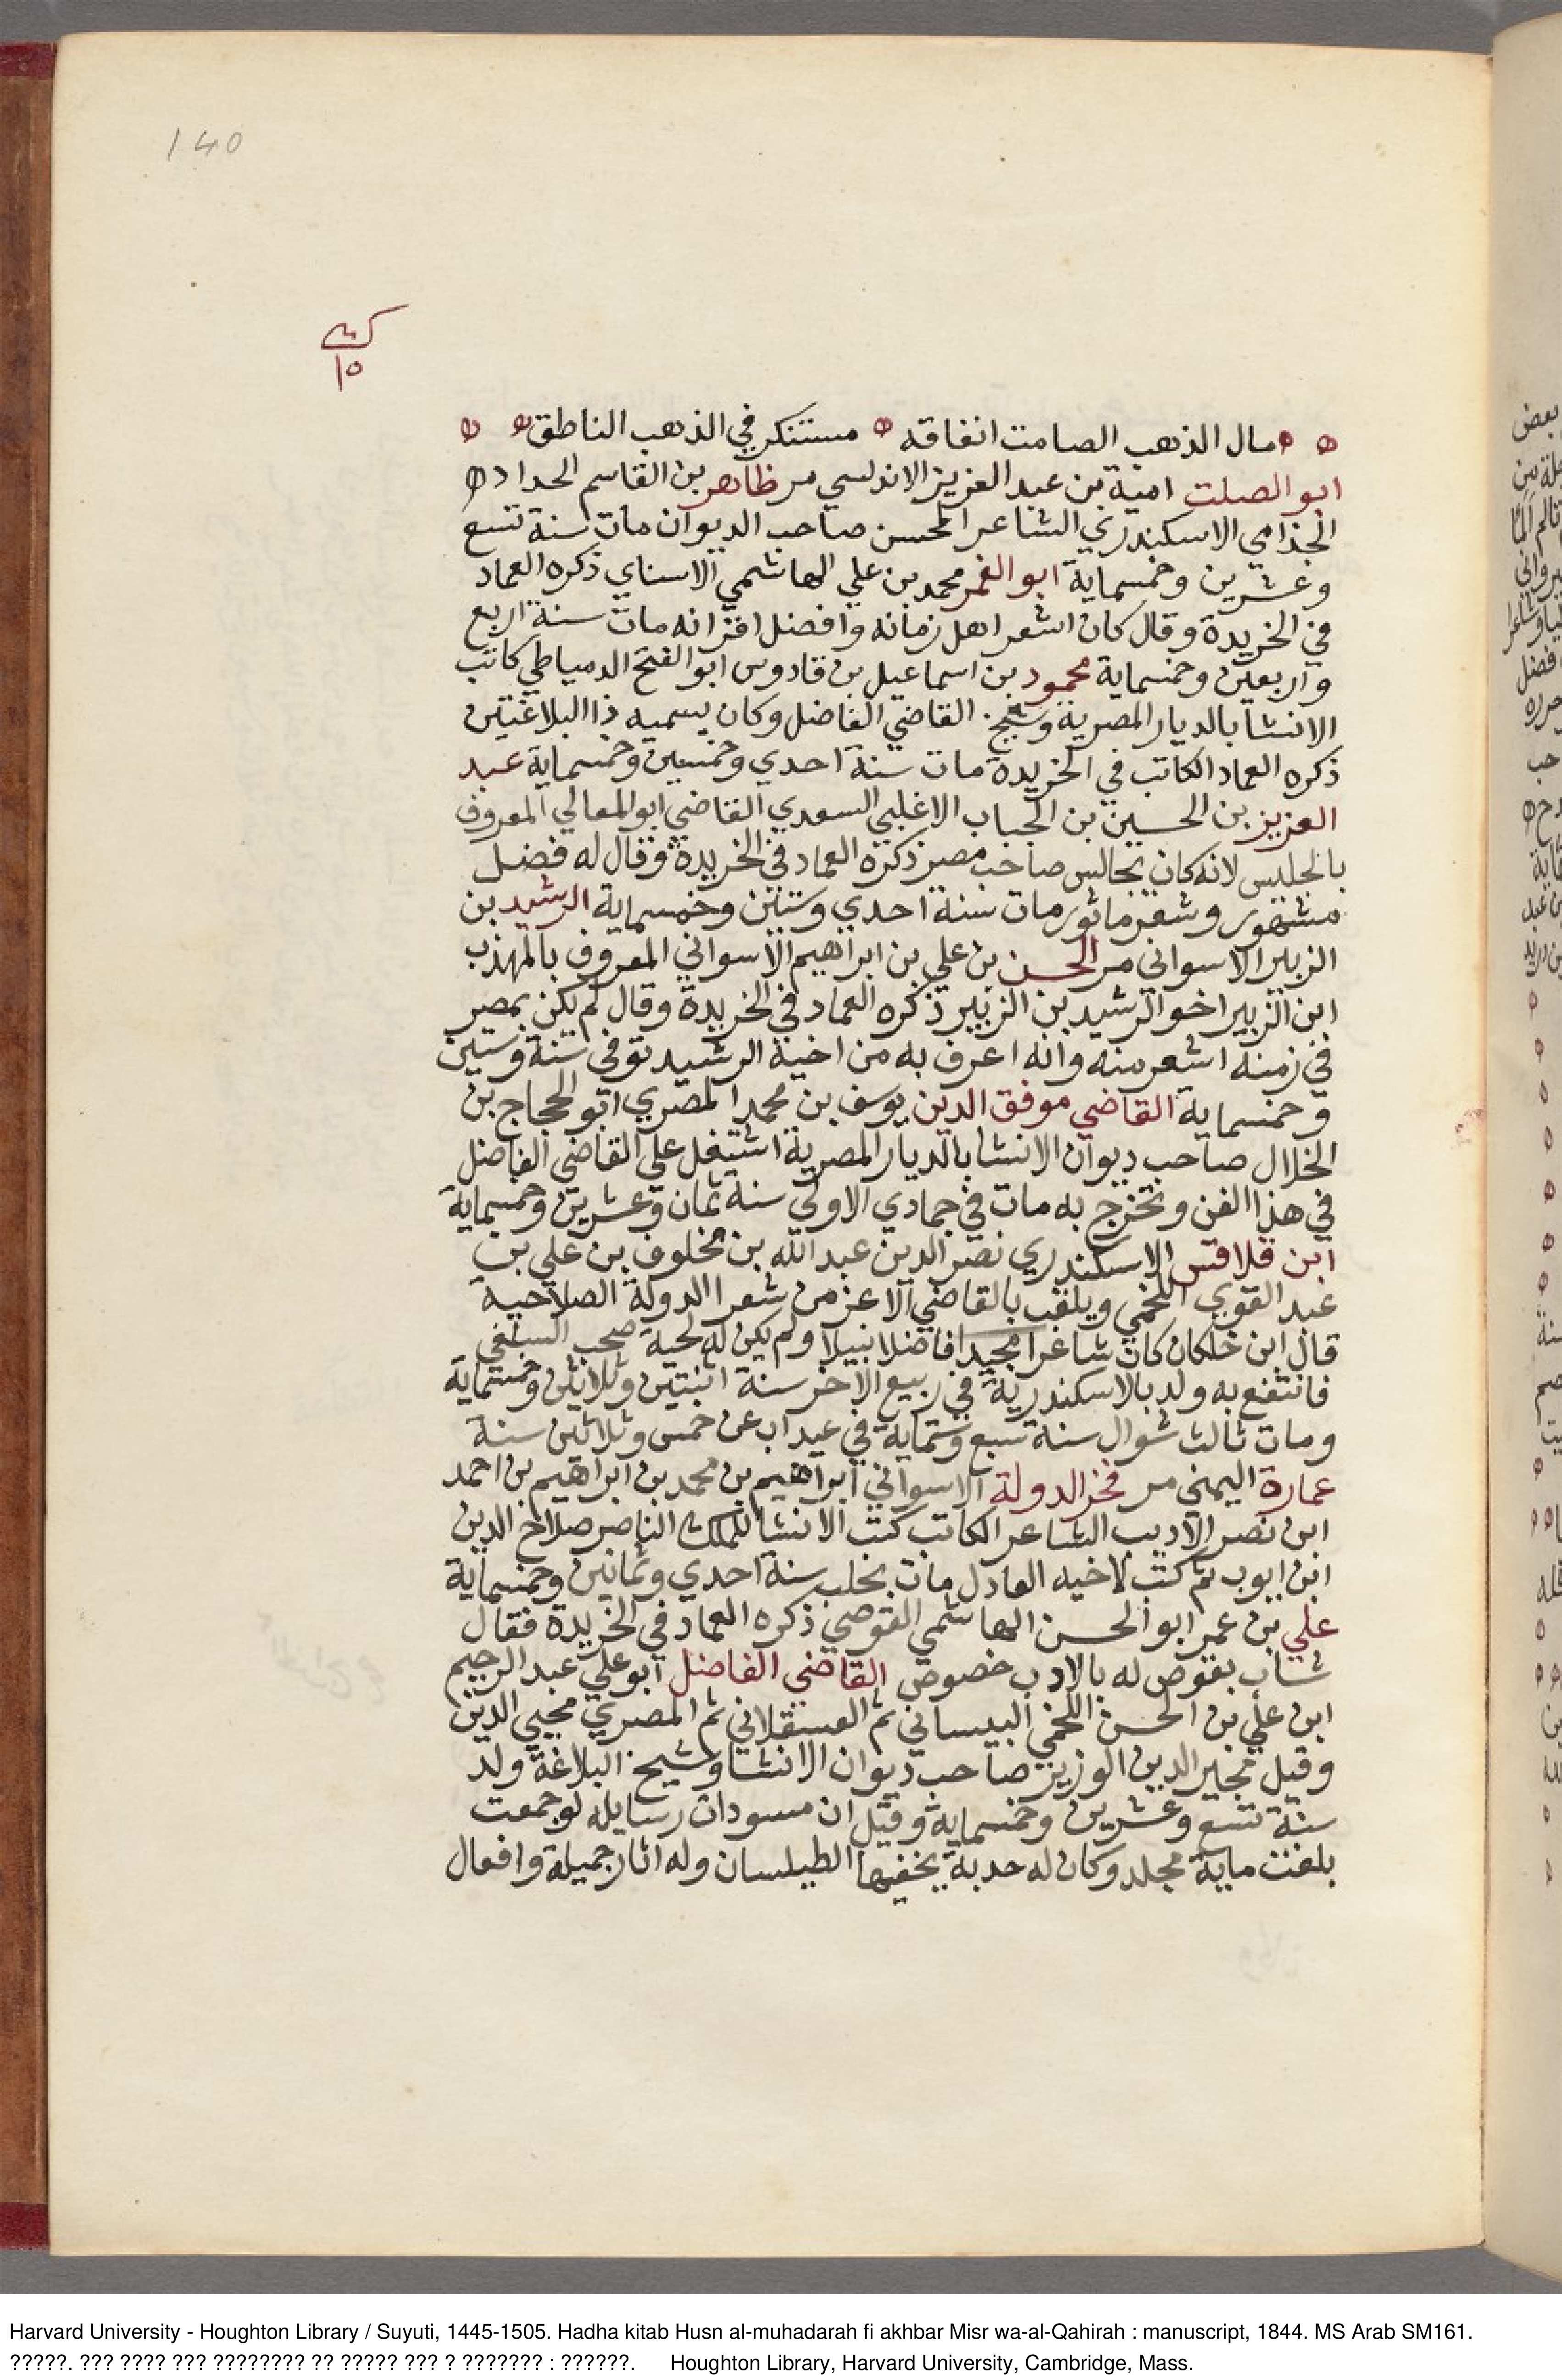 140
كـ
١٥
مال الذهب الصامت انفاقه مستنكر في الذهب الناطق
ابو الصلت امية بن عبد العزيز الاندلسي مر ظاهر بن القاسم الحداد
الجذامي الاسكندري الشاعر المحسن صاحب الديوان مات سنة تسع
وعشرين وخمسماية ابو الغمر محمد بن علي الهاشمي الاسناي ذكره العماد
في الخريدة وقال كان اشعر اهل زمانه وافضل اقرانه مات سنة اربع
واربعين وخمسماية محمود بن اسماعيل بن قادوس ابو الفتح الدمياطي كاتب
الانشا بالديار المصرية وشيخ القاضي الفاضل وكان يسميه ذا البلاغتين
ذكره العماد الكاتب في الخريدة مات سنة احدي وخمسين وخمسماية عبد
العزيز بن الحسين بن الجباب الاغلبي السعدي القاضي ابو المعالي المعروف
بالجليس لانه كان يجالس صاحب مصر ذكره العماد في الخريدة وقال له فضل
مشهور وشعر ماثور مات سنة احدي وستين وخمسماية الرشيد بن
الزبير الاسواني مر الحسن بن علي بن ابراهيم الاسواني المعروف بالمهذب
ابن الزبير اخو الرشيد بن الزبير ذكره العماد في الخريدة وقال لم يكن بمصر
في زمنه اشعر منه وانه اعرف به من اخيه الرشيد توفي سنة وستين
وخمسماية القاضي موفق الدين يوسف بن محمد المصري ابو الحجاج بن
الخلال صاحب ديوان الانشا بالديار المصرية اشتغل علي القاضي الفاضل
في هذا الفن وتخرج به مات في جمادي الاولي سنة ثمان وعشرين وخمسماية
ابن قلاقس الاسكندري نصر الدين عبد الله بن مخلوف بن علي بن
عبد القوي اللخمي ويلقب بالقاضي الاعز من شعرا الدولة الصلاحية
قال ابن خلكان كان شاعرا مجيدا فاضلا نبيلا ولم يكن له لحية صحب السلفي
فانتفع به ولد بالاسكندرية في ربيع الاخر سنة اثنتين وثلاثين وخمسماية
ومات ثالث شوال سنة سبع وستماية في عيداب عن خمس وثلاثين سنة
عمارة اليمني مر فخر الدولة الاسواني ابراهيم بن محمد بن ابراهيم بن احمد
ابن نصر الاديب الشاعر الكاتب كتب الانشا للملك الناصر صلاح الدين
ابن ايوب ثم كتب لاخيه العادل مات بحلب سنة احدي وثمانين وخمسماية
علي بن عمر ابو الحسن الهاشمي القوصي ذكره العماد في الخريدة فقال
شاب بقوص له بالادب خصوص القاضي الفاضل ابو علي عبد الرحيم
ابن علي بن الحسن اللخمي البيساني ثم العسقلاني ثم المصري محيي الدين
وقيل مجير الدين الوزير صاحب ديوان الانشا وشيخ البلاغة ولد
سنة تسع وعشرين وخمسماية وقيل ان مسودات رسايله لو جمعت
بلغت ماية مجلد وكان له حدبة يخفيها الطيلسان وله اثار جميلة وافعال
Harvard University - Houghton Library / Suyuti, 1445-1505. Hadha kitab Husn al-muhadarah fi akhbar Misr wa-al-Qahirah : manuscript, 1844. MS Arab SM161.
?????. ??? ???? ??? ???????? ?? ????? ??? ? ??????? : ??????. Houghton Library, Harvard University, Cambridge, Mass.